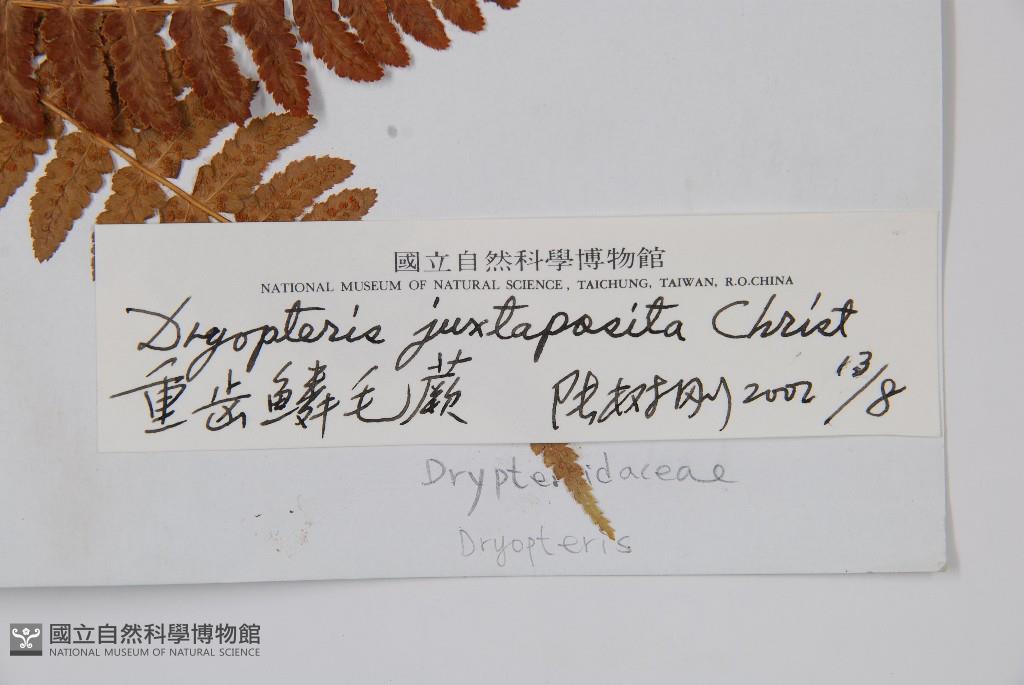 國立自然科學博物館
NATIONAL MUSEUM OF NATURAL SCIENCE, TAICHUNG, TAIWAN, R.O.CHINA
Dryopteris juxtaposita Christ
重齿鳞毛蕨 陆树刚 2002 13/8
Drypteridaceae
Dryopteris
國立自然科學博物館
NATIONAL MUSEUM OF NATURAL SCIENCE